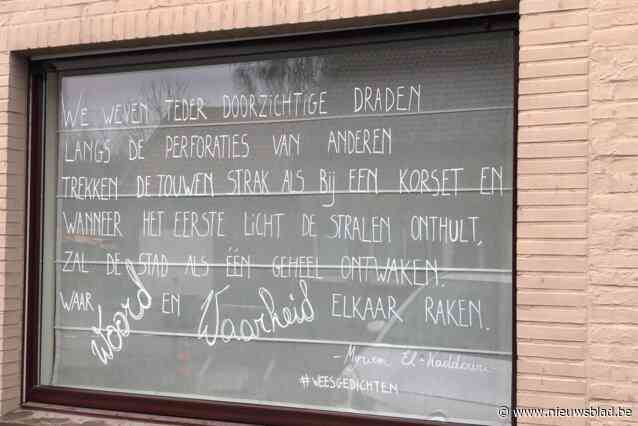 WE WEVEN TEDER DOORZICHTIGE DRADEN
LANGS DE PERFORATIES VAN ANDEREN
TREKKEN DE TOUWEN STRAK ALS BIJ EEN KORSET EN
WANNEER HET EERSTE LICHT DE STRALEN ONTHULT,
ZAL DE STAD ALS ÉÉN GEHEEL ONTWAKEN.
WAAR Woord EN Waarheid ELKAAR RAKEN.
- Myriem El-Kaddouri
#WEESGEDICHTEN
© www.nieuwsblad.be